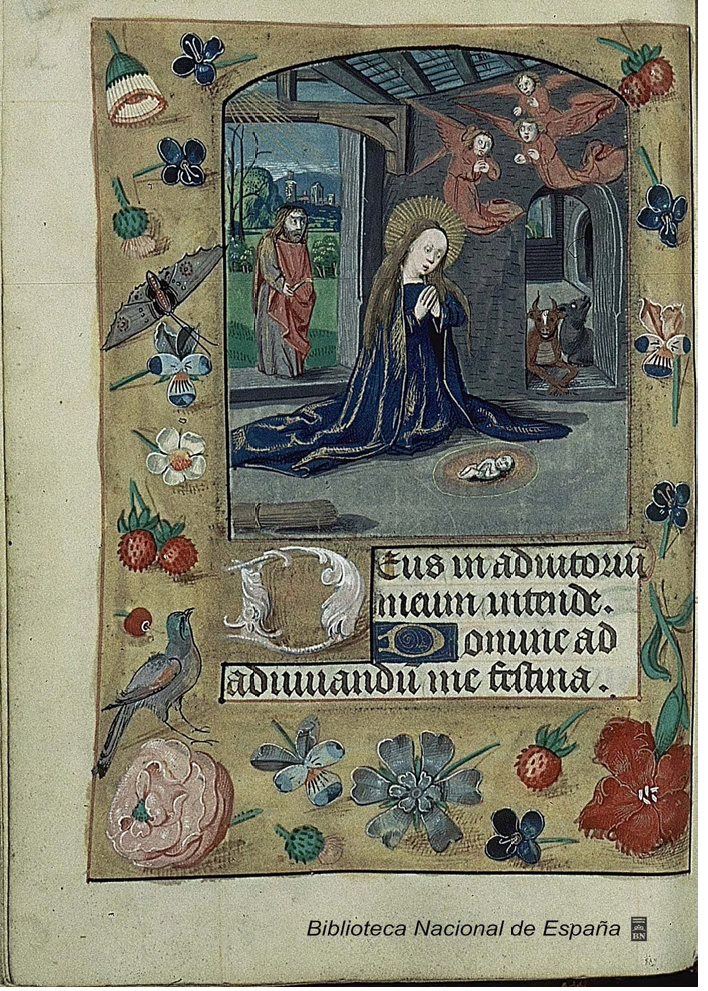 Deus in adiutoriū
meum intende.
Domine ad
adiuuandū me festina.
Biblioteca Nacional de España
BN